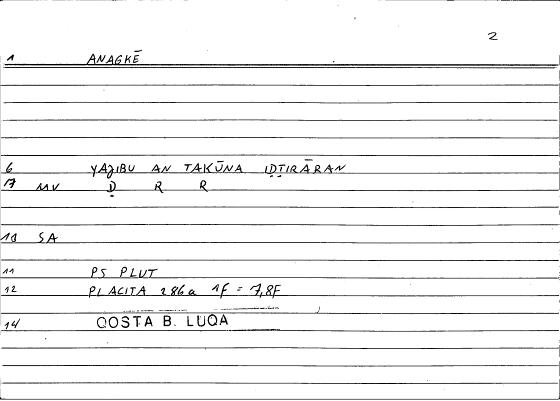 2
1 ANAGKĒ
6 YAǦIBU AN TAKŪNA IḌṬIRĀRAN
17 MV Ḍ R R
10 SA
11 PS PLUT
12 PLACITA 286a 1f = 7,8F
14 QOSTA B. LUQA